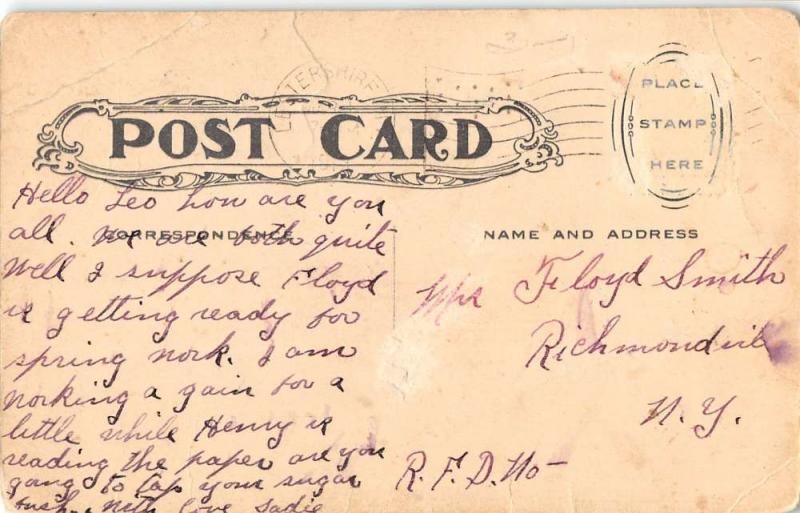 LESTERSHIRE
POST CARD
PLACE
STAMP
HERE
CORRESPONDENCE
NAME AND ADDRESS
Hello Leo how are you
all. We are both quite
well I suppose Floyd
is getting ready for
spring work. I am
working a gain for a
little while Henry is
reading the paper are you
gong to tap your sugar
bush. With love Sadie
Mrs Floyd Smith
Richmondvil
N.Y.
R.F.D. No—